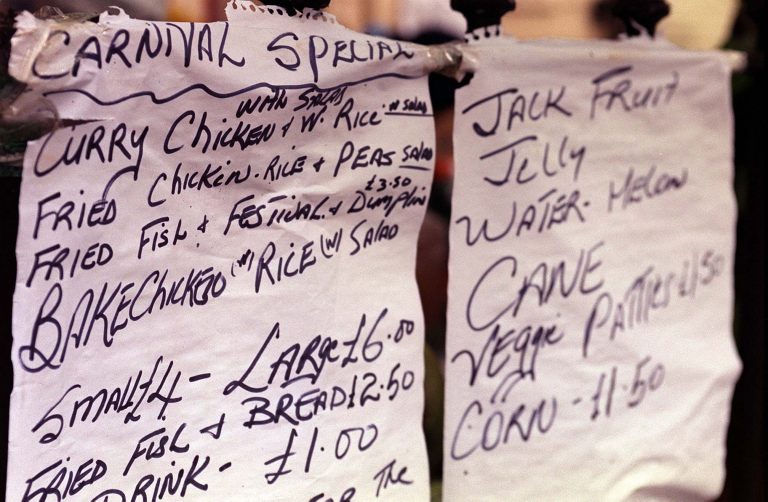 CARNIVAL SPECIAL
WITH SALAD
CURRY CHICKEN + W. RICE W SALAD
FRIED CHICKEN. RICE + PEAS SALAD
£3.50
FRIED FISH + FESTIVAL + Dumplin
BAKE CHICKEN (W) RICE (W) SALAD
SMALL £4 - LARGE £6.00
FRIED FISH + BREAD £2.50
DRINK - £1.00
FOR The
JACK FRUIT
JELLY
WATER-MELON
CANE
VEGGIE PATTIES £1/50
CORN - £1.50